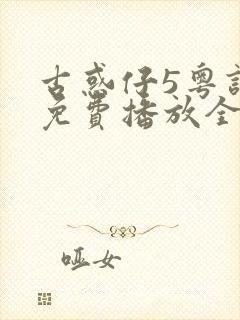 古惑仔5粤
免费播放全
哑女